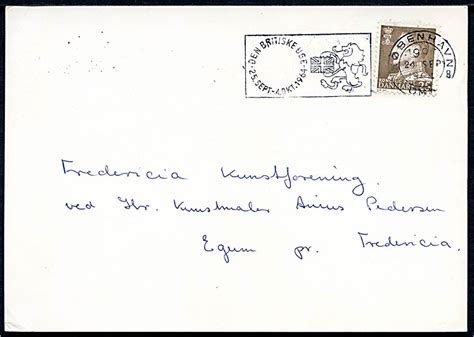 DEN BRITISKE UGE
25. SEPT - 4. OKT. 1964
KØBENHAVN
24 SEP
OMK
DANMARK 25
Fredericia Kunstforening.
ved Hr. Kunstmaler Anius Pedersen
Egum pr. Fredericia.